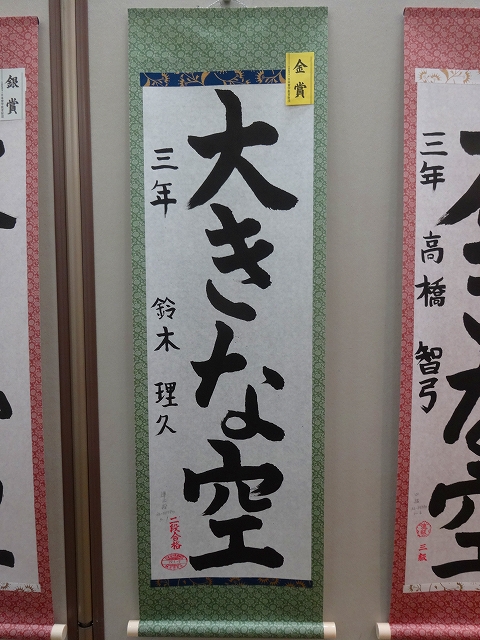 金賞
大きな空
三年 鈴木 理久
二段合格
銀賞
三年 高橋 智弓
三級